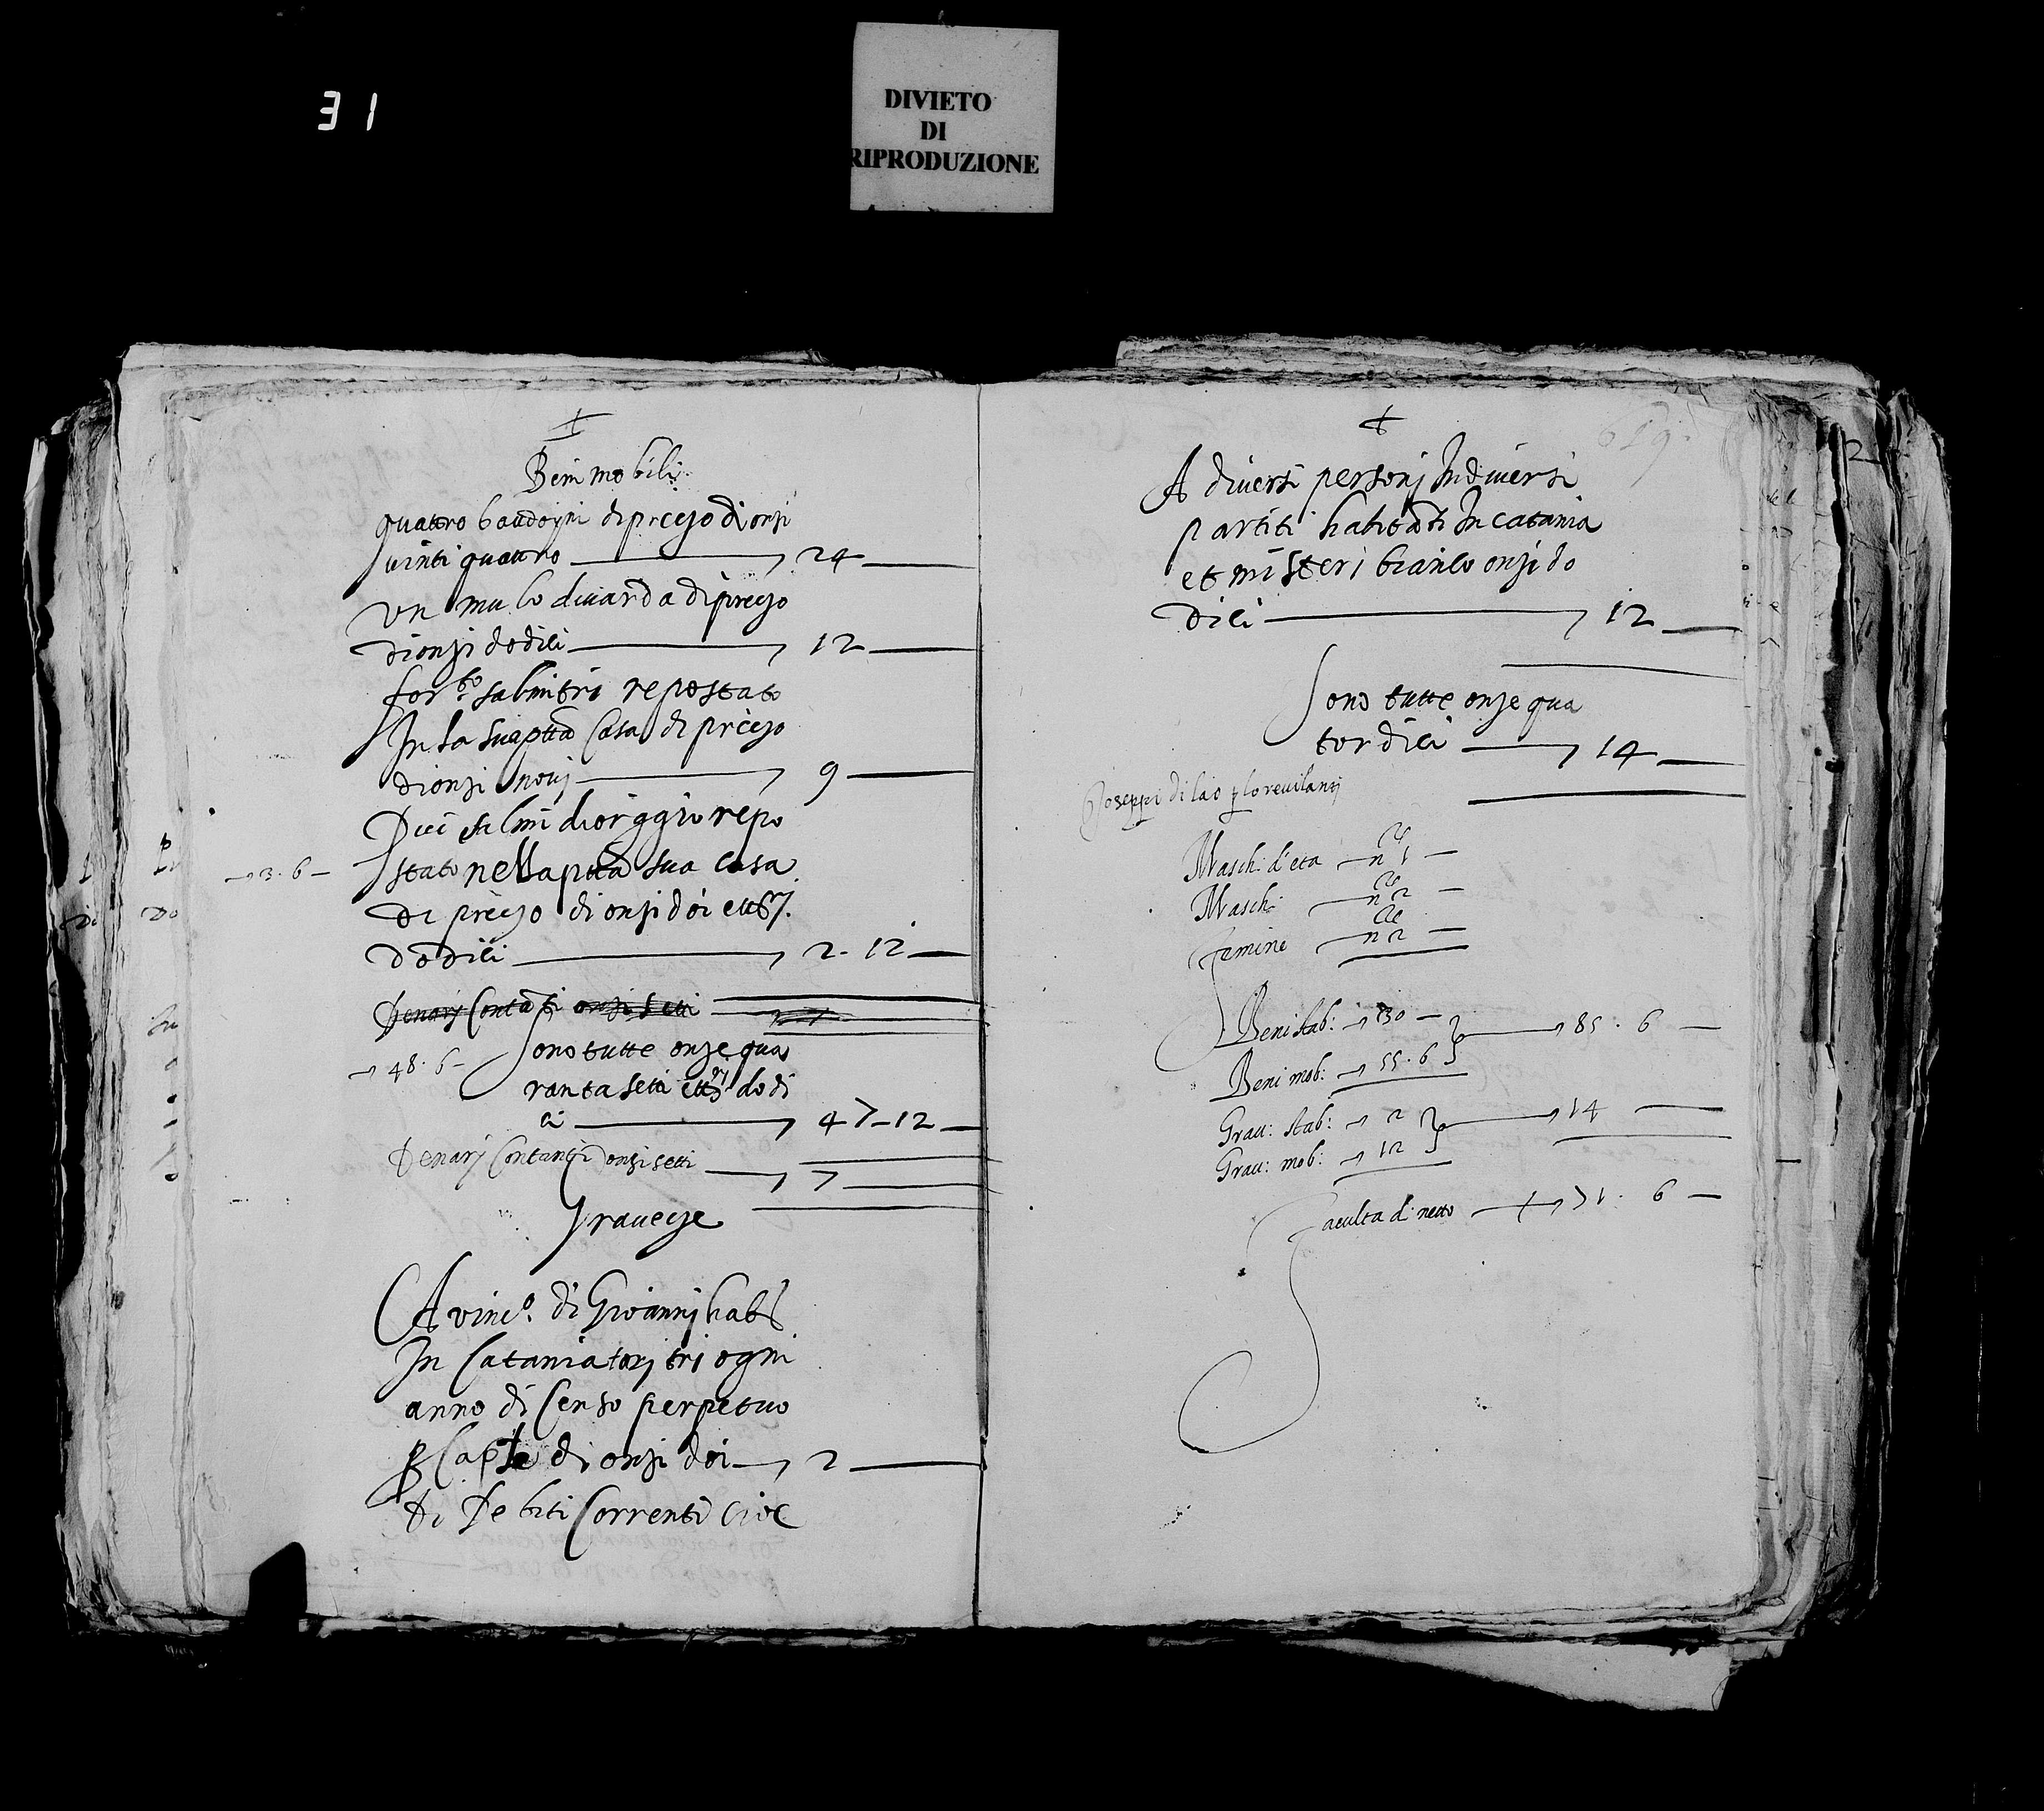 31
DIVIETO
DI
RIPRODUZIONE
Beni mobili
quattro baudoyni di preczo di onzi
vinti quattro 24
Un mulo di varda di preczo
di onzi dodici 12
salmi tri repostato
In la sua ptta casa di preczo
di onzi novj 9
Dui salmi di orggio repo
stato nella ptta sua casa
3.6
di preczo di onzi doi et
dodici 2.12
Denarj Contanti onzi setti
Sono tutte onze qua
48.6
ranta setti et dodi
ci 47-12
Denarj Contanti onzi setti 7
Graveze
A vinc.o di Giovannj
In Catania torj tri ogni
anno di Censo perpetuo
di onzi doi 2
Di Debiti Correnti cioe
A diversi personj In diversi
partiti habitanti In Catania
et misteri bianco onzi do
dici 12
Sono tutte onze qua
tordici 14
Joseppi di
Masch: d'eta n 1
Masch: n 2
Femine n 2
Beni stab: 30
85.6
Beni mob: 55.6
Grav: stab: 2
14
Grav: mob: 12
Faculta di netto 71.6